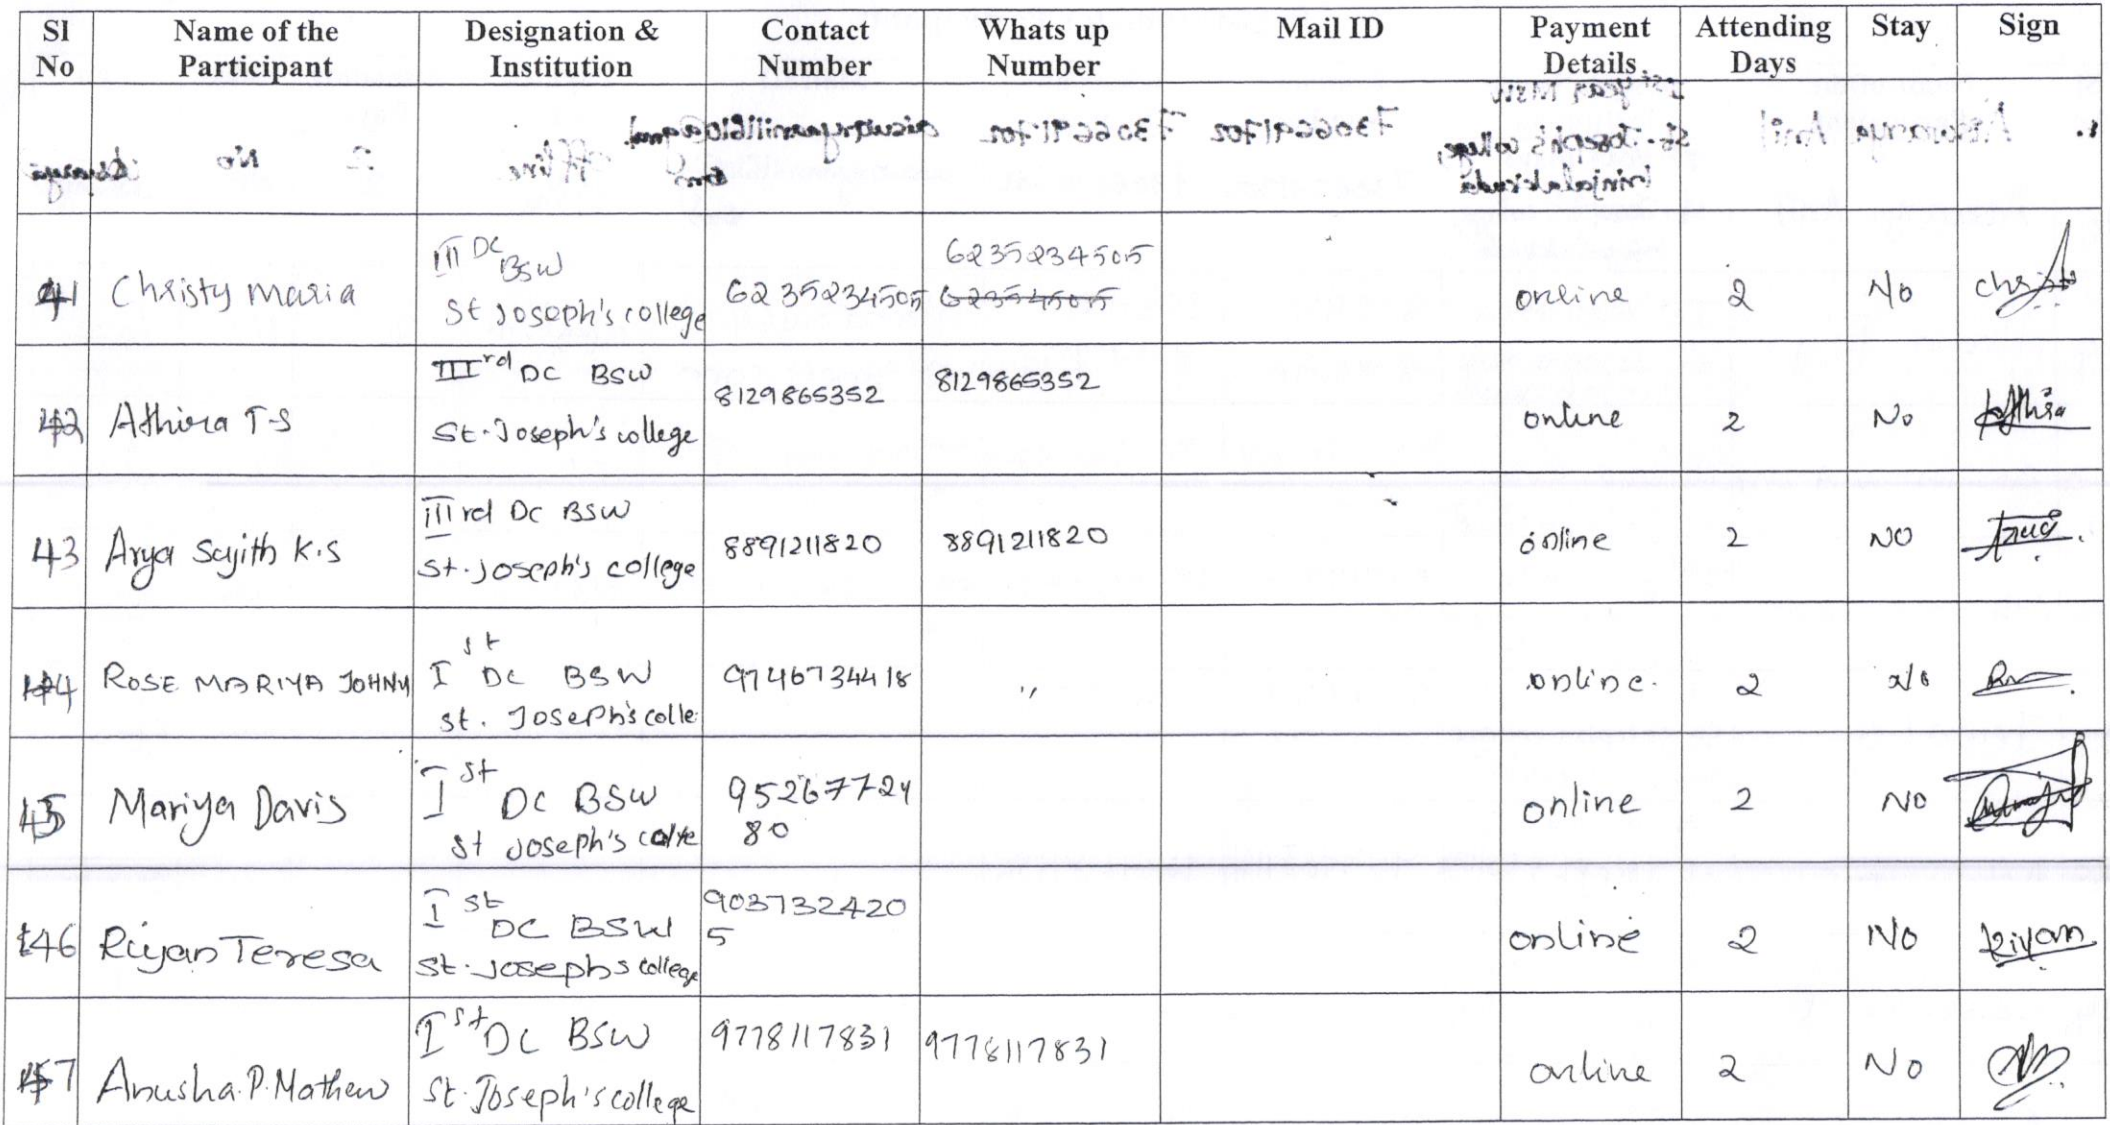 Sl No Name of the Participant Designation & Institution Contact Number Whats up Number Mail ID Payment Details Attending Days Stay Sign
Ist year MSW St. Joseph's college, Irinjalakkuda 7306691702 7306691702 offline 2 No
41 Christy Maria III DC BSW St Joseph's college 6235234505 6235234505 online 2 No Christy
42 Athira T-S IIIrd DC BSW St. Joseph's college 8129865352 8129865352 online 2 No Athira
43 Arya Sajith K.S IIIrd DC BSW St. Joseph's college 8891211820 8891211820 online 2 NO
44 ROSE MARIYA JOHNY Ist DC BSW St. Joseph's colle 9746734418 ,, online. 2 No
45 Mariya Davis Ist DC BSW St Joseph's 9526772480 online 2 NO
46 Riyan Teresa Ist DC BSW St. Josephs college 9037324205 online 2 No Riyan
47 Anusha.P.Mathew Ist DC BSW St. Joseph's college 9778117831 9778117831 online 2 No